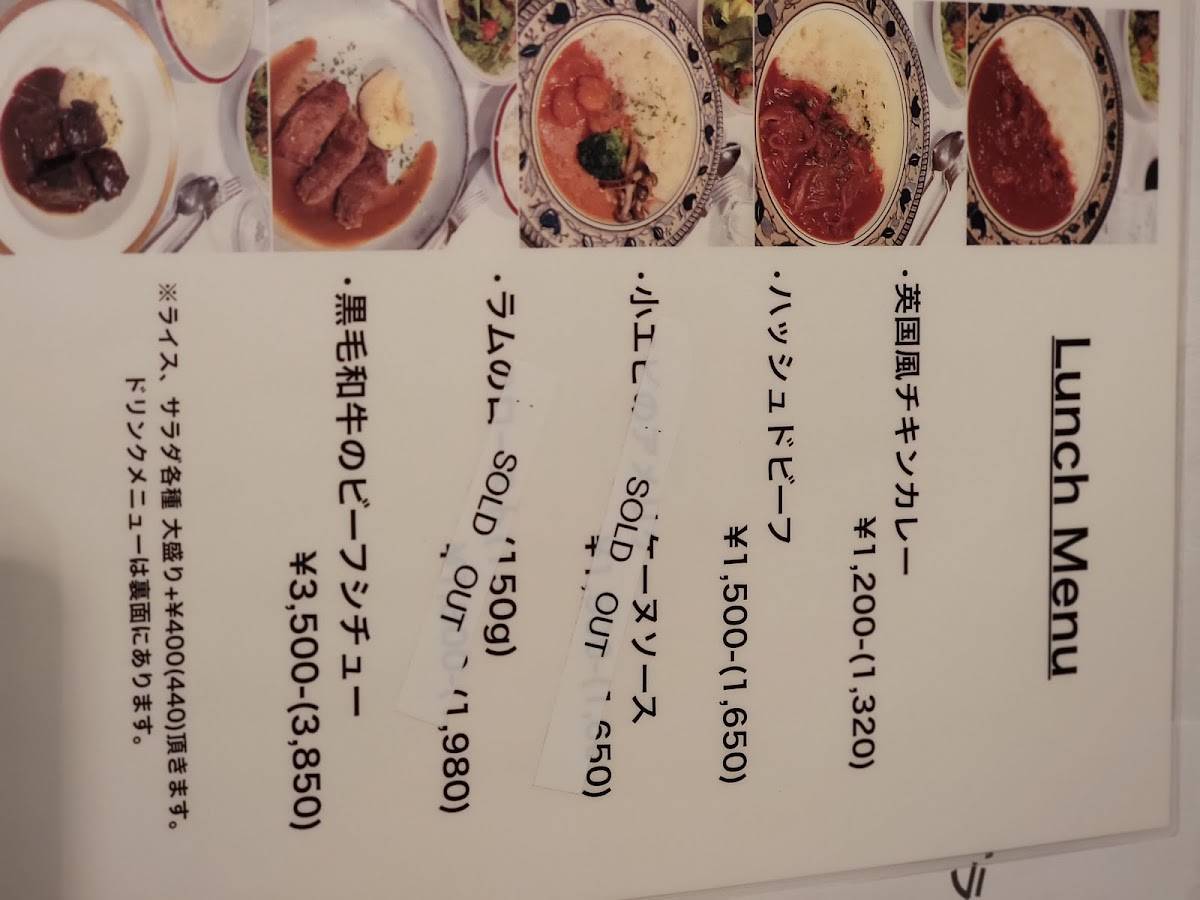 Lunch Menu
・英国風チキンカレー
¥1,200-(1,320)
・ハッシュドビーフ
¥1,500-(1,650)
・小エビのアメリケーヌソース
SOLD OUT
(1,650)
・ラムの
(150g)
SOLD OUT
(1,980)
・黒毛和牛のビーフシチュー
¥3,500-(3,850)
※ライス、サラダ各種 大盛り+¥400(440)頂きます。
ドリンクメニューは裏面にあります。
ラ